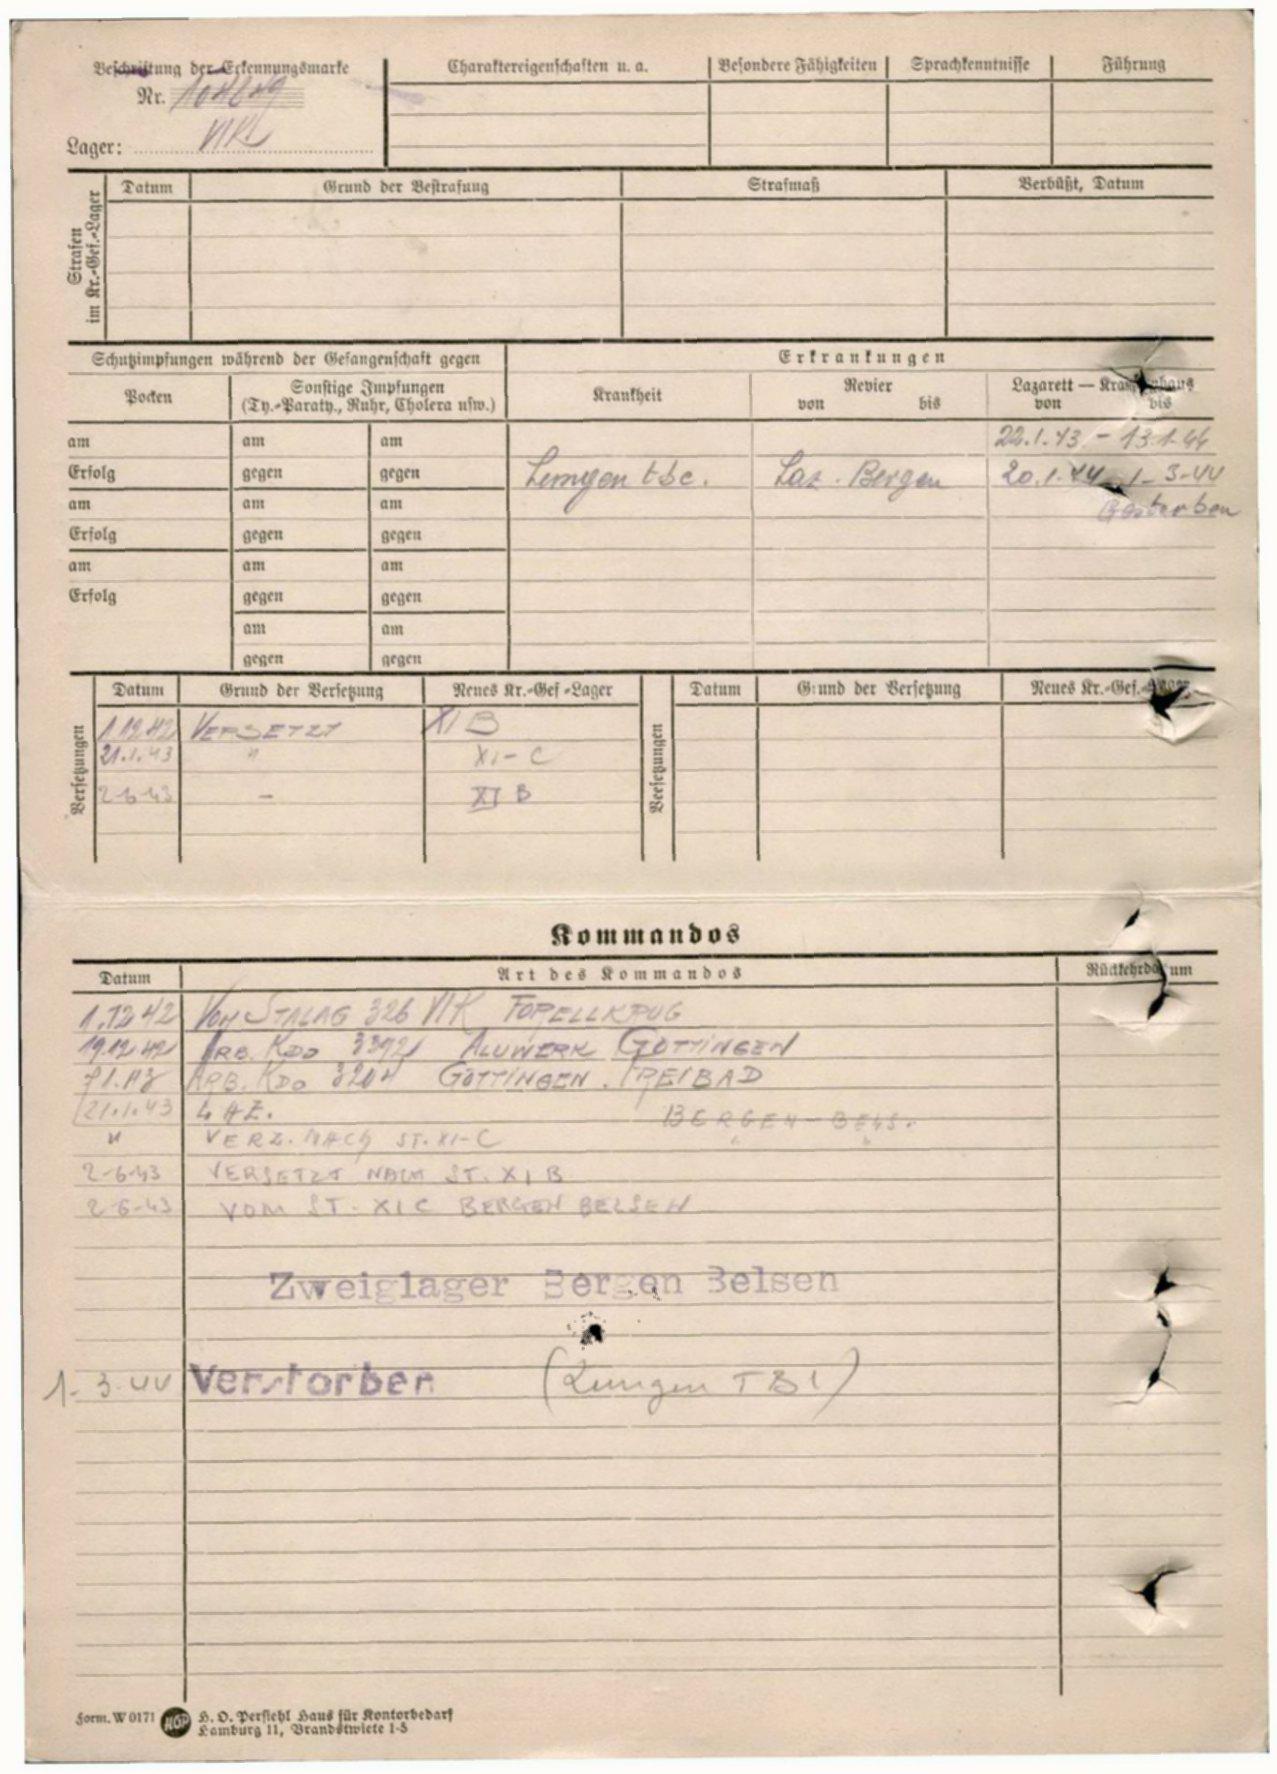 Beschriftung der Erkennungsmarke
Nr.
Lager: VIK
Charaktereigenschaften u. a. Besondere Fähigkeiten Sprachkenntnisse Führung
Strafen im Kr.-Gef.-Lager
Datum Grund der Bestrafung Strafmaß Verbüßt, Datum
Schutzimpfungen während der Gefangenschaft gegen Erkrankungen
Pocken Sonstige Impfungen (Ty.-Paraty., Ruhr, Cholera usw.) Krankheit Revier von bis Lazarett — Krankenhaus von bis
am am am 22.1.43 - 13.1.44
Erfolg gegen gegen Lungen tbc. Laz. Bergen 20.1.44 1-3-44
am am am Gestorben
Erfolg gegen gegen
am am am
Erfolg gegen gegen
am am
gegen gegen
Versetzungen
Datum Grund der Versetzung Neues Kr.-Gef-Lager
1.12.42 VERSETZT XI B
21.1.43 " XI-C
2-6-43 – XI B
Versetzungen
Datum Grund der Versetzung Neues Kr.-Gef.-Lager
Kommandos
Datum Art des Kommandos Rückkehrdatum
1.12.42 VOM STALAG 326 VIK FORELLKRUG
19.12.42 ARB. KDO 3392 ALUWERK GÖTTINGEN
7.1.43 ARB. KDO 3204 GÖTTINGEN. FREIBAD
21.1.43 LAZ. BERGEN-BELS.
" VERZ. NACH ST. XI-C " "
2-6-43 VERSETZT NACH ST. XI B
2-6-43 VOM ST. XI C BERGEN BELSEN
Zweiglager Bergen Belsen
1-3-44 Verstorben (Lungen TBC)
Form. W 0171 HOP H. O. Persiehl Haus für Kontorbedarf
Hamburg 11, Brandstwiete 1-5